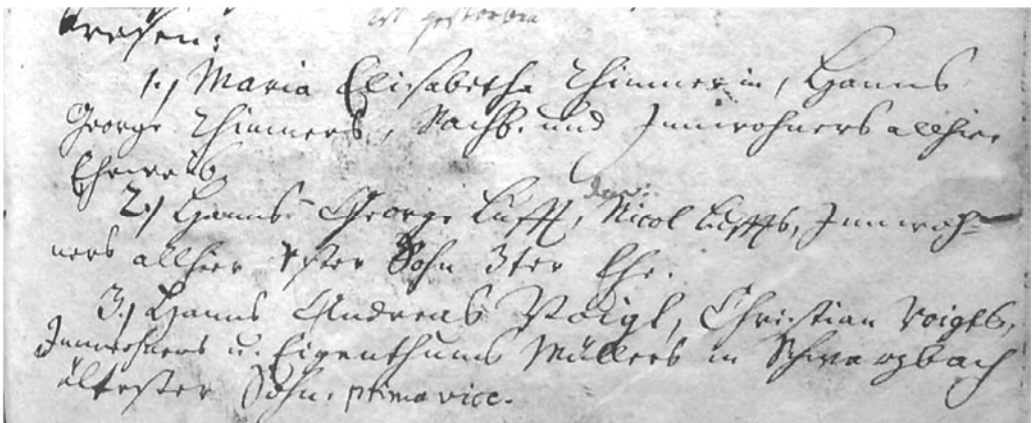 ist gestorben
waren:
1.) Maria Elisabetha Thümmerin, Hanns
George Thümmers, Nachb. und Innwohners allhier
Eheweib.
2.) Hanns George Lufft, Nicol Luffts, Innwoh-
ners allhier ster Sohn 3ter Ehe.
3.) Hanns Andreas Voigt, Christian Voigts,
Innwohners u. Eigenthums Müllers in Schwarzbach
ältester Sohn. prima vice.